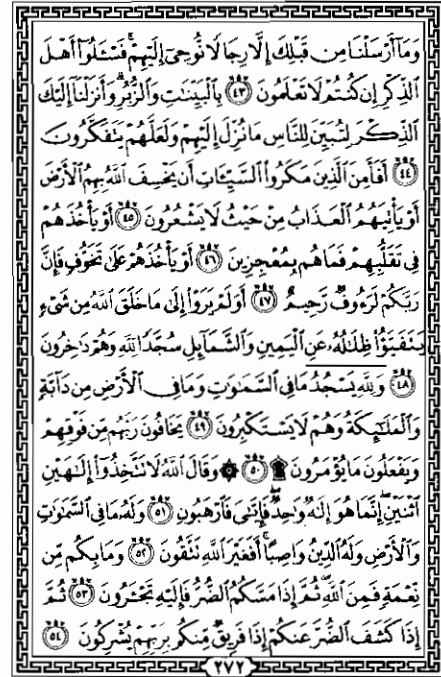 وَمَآ أَرْسَلْنَا مِن قَبْلِكَ إِلَّا رِجَالًا نُّوحِىٓ إِلَيْهِمْ ۚ فَسْـَٔلُوٓا۟ أَهْلَ
ٱلذِّكْرِ إِن كُنتُمْ لَا تَعْلَمُونَ ﴿٤٣﴾ بِٱلْبَيِّنَٰتِ وَٱلزُّبُرِ ۗ وَأَنزَلْنَآ إِلَيْكَ
ٱلذِّكْرَ لِتُبَيِّنَ لِلنَّاسِ مَا نُزِّلَ إِلَيْهِمْ وَلَعَلَّهُمْ يَتَفَكَّرُونَ
﴿٤٤﴾ أَفَأَمِنَ ٱلَّذِينَ مَكَرُوا۟ ٱلسَّيِّـَٔاتِ أَن يَخْسِفَ ٱللَّهُ بِهِمُ ٱلْأَرْضَ
أَوْ يَأْتِيَهُمُ ٱلْعَذَابُ مِنْ حَيْثُ لَا يَشْعُرُونَ ﴿٤٥﴾ أَوْ يَأْخُذَهُمْ
فِى تَقَلُّبِهِمْ فَمَا هُم بِمُعْجِزِينَ ﴿٤٦﴾ أَوْ يَأْخُذَهُمْ عَلَىٰ تَخَوُّفٍ فَإِنَّ
رَبَّكُمْ لَرَءُوفٌ رَّحِيمٌ ﴿٤٧﴾ أَوَلَمْ يَرَوْا۟ إِلَىٰ مَا خَلَقَ ٱللَّهُ مِن شَىْءٍ
يَتَفَيَّؤُا۟ ظِلَٰلُهُۥ عَنِ ٱلْيَمِينِ وَٱلشَّمَآئِلِ سُجَّدًا لِّلَّهِ وَهُمْ دَٰخِرُونَ
﴿٤٨﴾ وَلِلَّهِ يَسْجُدُ مَا فِى ٱلسَّمَٰوَٰتِ وَمَا فِى ٱلْأَرْضِ مِن دَآبَّةٍ
وَٱلْمَلَٰٓئِكَةُ وَهُمْ لَا يَسْتَكْبِرُونَ ﴿٤٩﴾ يَخَافُونَ رَبَّهُم مِّن فَوْقِهِمْ
وَيَفْعَلُونَ مَا يُؤْمَرُونَ ۩ ﴿٥٠﴾ ۞ وَقَالَ ٱللَّهُ لَا تَتَّخِذُوٓا۟ إِلَٰهَيْنِ
ٱثْنَيْنِ ۖ إِنَّمَا هُوَ إِلَٰهٌ وَٰحِدٌ ۖ فَإِيَّٰىَ فَٱرْهَبُونِ ﴿٥١﴾ وَلَهُۥ مَا فِى ٱلسَّمَٰوَٰتِ
وَٱلْأَرْضِ وَلَهُ ٱلدِّينُ وَاصِبًا ۚ أَفَغَيْرَ ٱللَّهِ تَتَّقُونَ ﴿٥٢﴾ وَمَا بِكُم مِّن
نِّعْمَةٍ فَمِنَ ٱللَّهِ ۖ ثُمَّ إِذَا مَسَّكُمُ ٱلضُّرُّ فَإِلَيْهِ تَجْـَٔرُونَ ﴿٥٣﴾ ثُمَّ
إِذَا كَشَفَ ٱلضُّرَّ عَنكُمْ إِذَا فَرِيقٌ مِّنكُم بِرَبِّهِمْ يُشْرِكُونَ ﴿٥٤﴾
٢٧٢